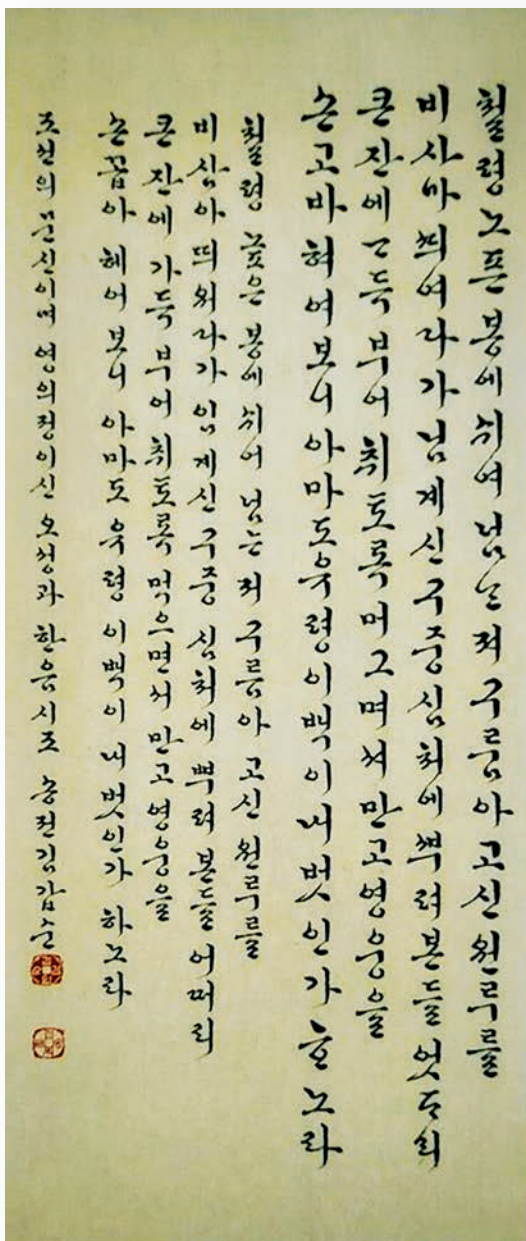 철령노픈봉에쉬여넘는져구룸아고신원루를
비사마ᄯᅴ여다가님계신구중심처에ᄲᅮ려본들엇ᄃᆞ리
큰잔에ᄀᆞ득부어취토록머그며셔만고영웅을
손고바혀여보니아마도유령이백이내벗인가ᄒᆞ노라
철령 높은 봉에 쉬어 넘는 저 구름아 고신 원루를
비삼아 띄워다가 임 계신 구중 심처에 뿌려 본들 어떠리
큰 잔에 가득 부어 취토록 먹으면서 만고 영웅을
손 꼽아 헤어 보니 아마도 유령 이백이 내 벗인가 하노라
조선의 문신이며 영의정이신 오성과 한음시조 송전김갑순